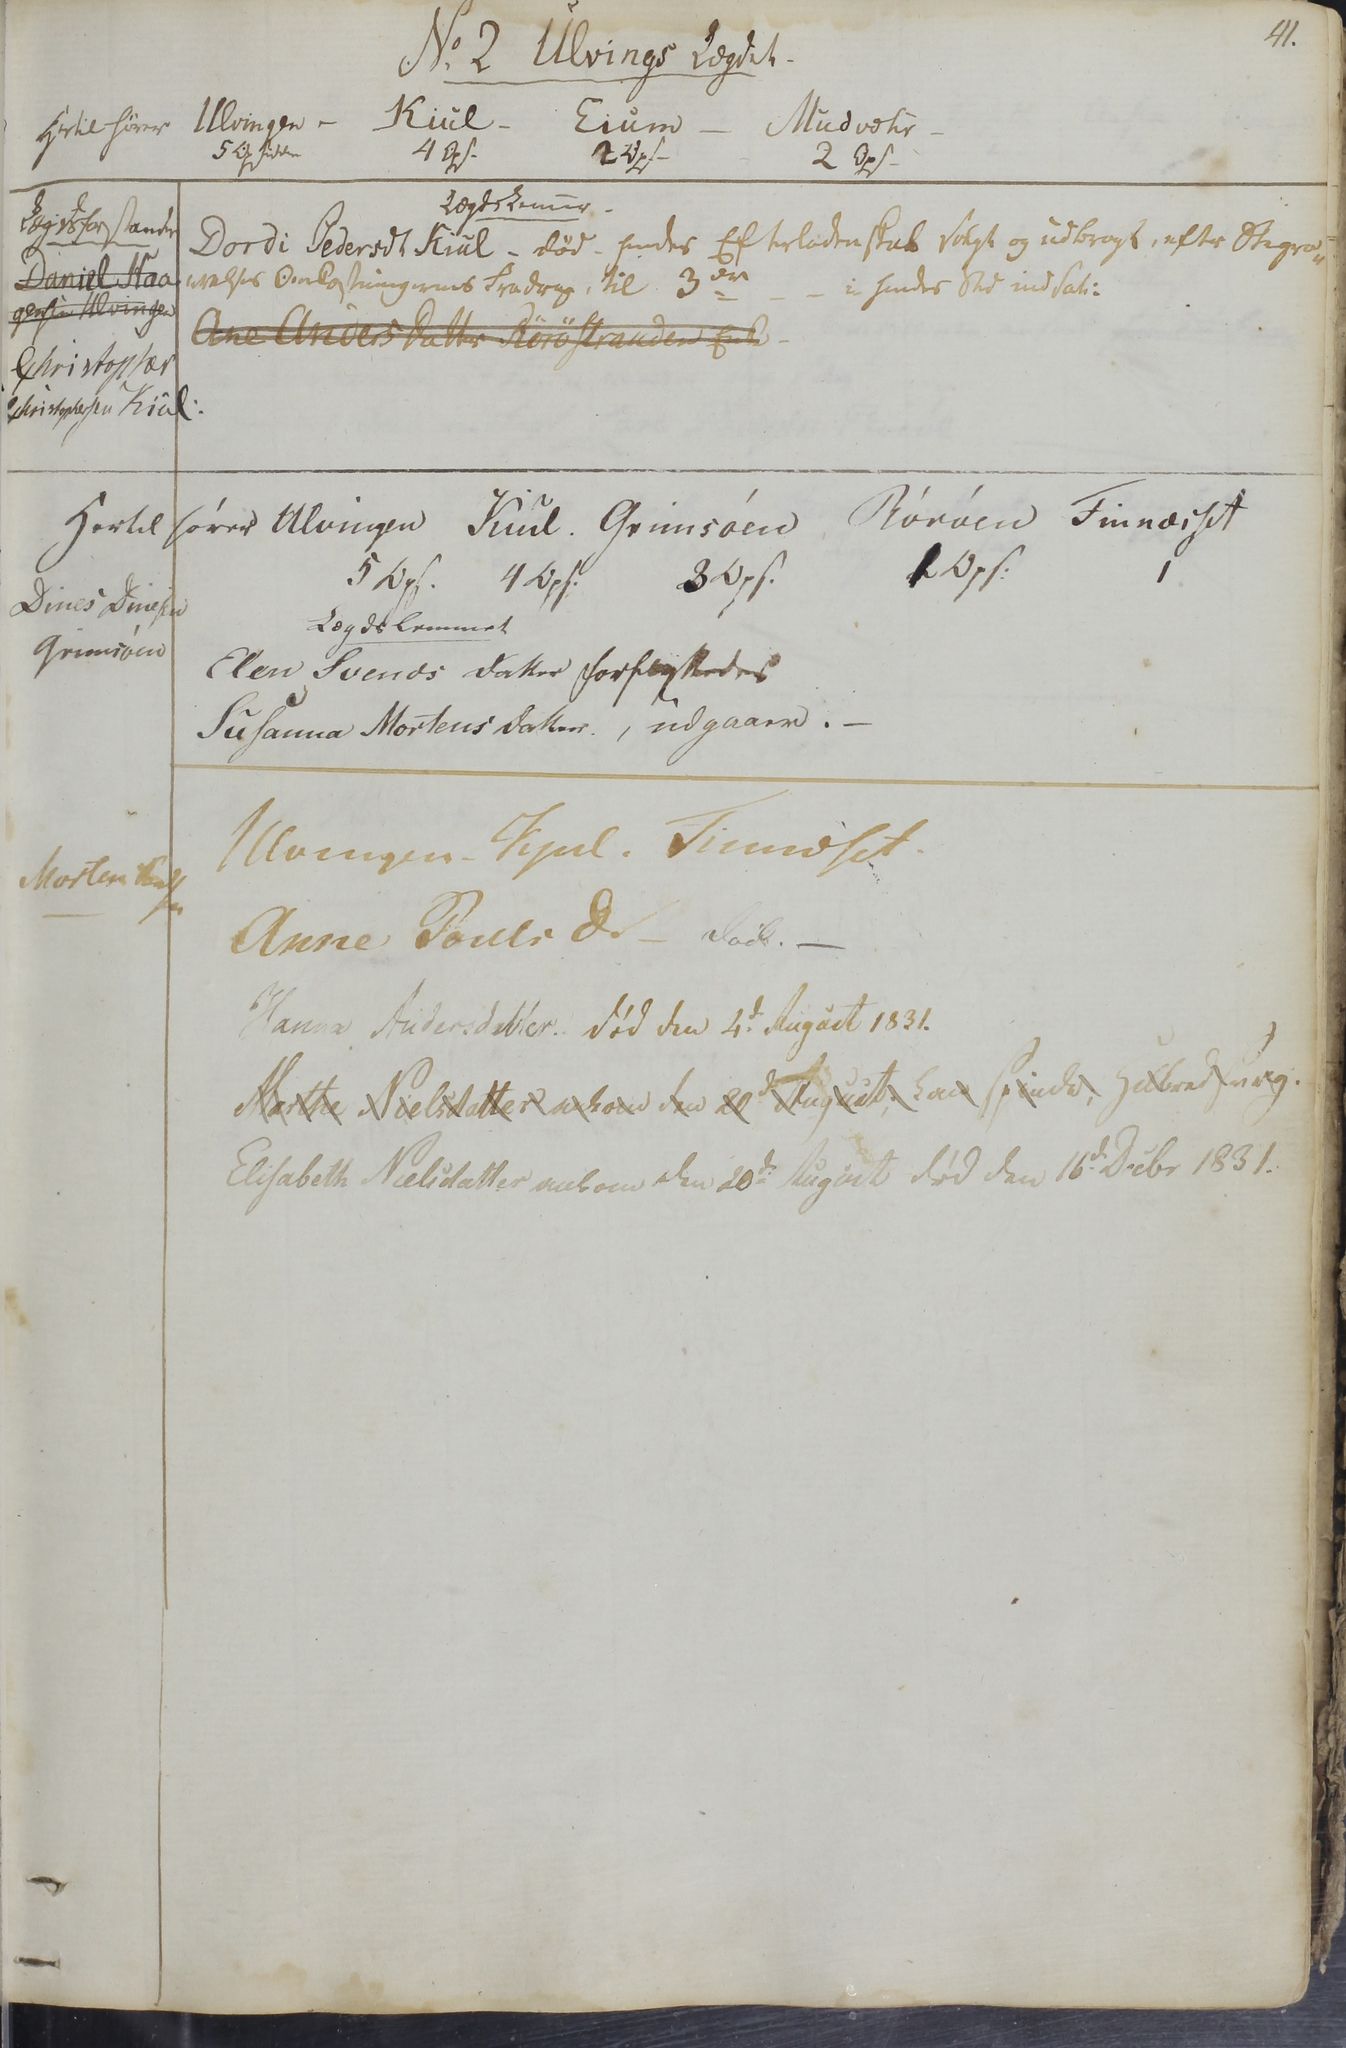 41.
No. 2 Ulvings Lægdet.
Hertil hører Ulvingen - Kiul - Eium - Mudvær -
5 Opsiddere 4 Ops. 2 Ops. 2 Ops.
Lægdsforstander
Daniel Haa-
gensen Ulvingen
Christopher
Christophersen Kiul:
Lægds Lemmer -
Dordi Pedersdt Kiul - død - hendes Efterladenskab solgt og udbragt, efter Begra-
velses Omkostningernes Fradrag, til 3 - - i hendes Sted indsat:
Ane Andersdatter Röröstranden Enke -
Hertil hører Ulvingen Kiul. Grimsöen Röröen Finnæsset
5 Ops. 4 Ops. 3 Ops. 1 Ops. 1
Dines Dinesen
Grimsöen
Lægdslemmet
Elen Svends datter forflyttedes
Susanna Mortens datter, udgaaer. -
Morten
Ulvingen - Kjul. Finnæset.
Anne Pouls D. - død. -
Hanna Andersdatter. død den 4d August 1831.
Marthe Nielsdatter ankom den 20d August, kan spinde,
Elisabeth Nielsdatter ankom den 20d August død den 16d Decbr 1831.